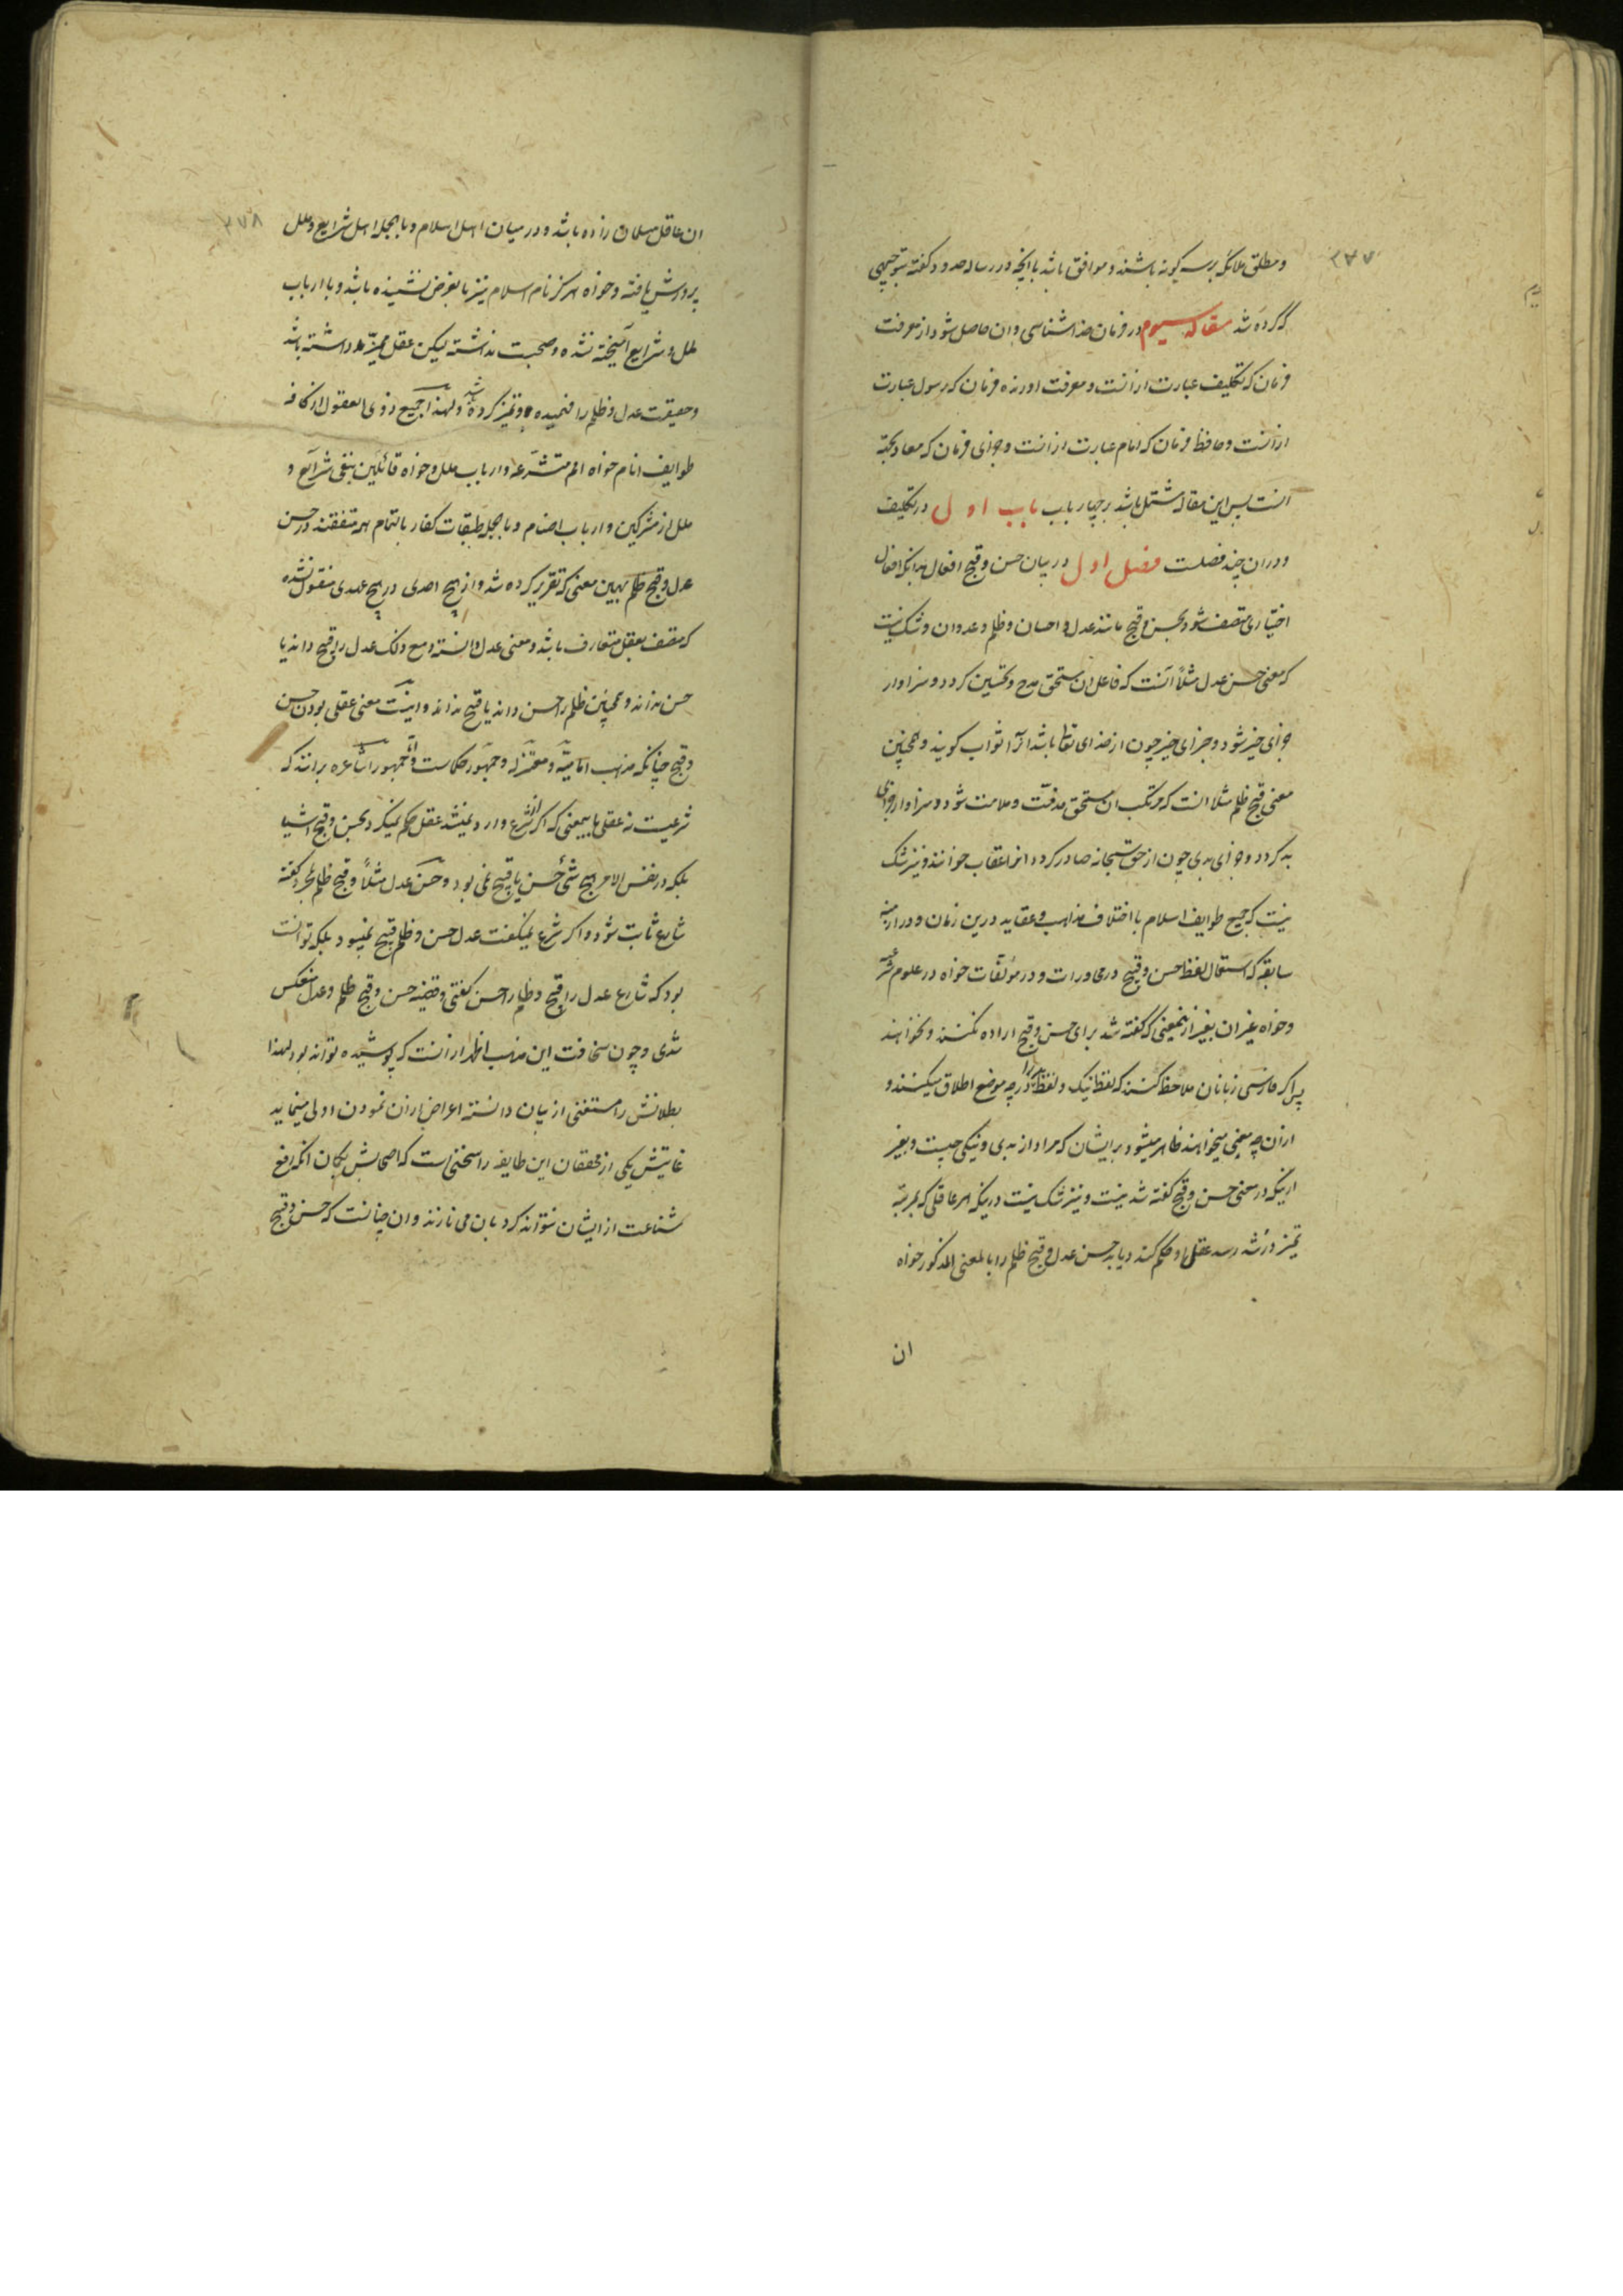 ۲۷۷
و مطلق ملائکه بر سه گونه باشند و موافق باشد با آنچه در رساله حدود گفته بتوجیهی
که کرده شد مقاله سیوم در فرمان خدا شناسی و ان حاصل شود از معرفت
فرمان که تکلیف عبارت از انست و معرفت اورنده فرمان که رسول عبارت
از انست و حافظ فرمان که امام عبارت از انست و جزای فرمان که معاد بجهة
انست پس این مقاله مشتمل باشد بر چهار باب باب اول در تکلیف
و در ان چند فصلست فصل اول در بیان حسن و قبح افعال بدانکه افعال
اختیاری متصف شود بحسن و قبح مانند عدل و احسان و ظلم و عدوان و شک نیست
که معنی حسن عدل مثلاً آنست که فاعل ان مستحق مدح و تحسین کردد و سزاوار
جزای خیر شود و جزای خیر چون از خدای تعالی باشد انرا ثواب کویند و همچنین
معنی قبح ظلم مثلا انست که مرتکب ان مستحق مذمّت و ملامت شود و سزاوار جزای
بد کردد و جزای بدی چون از حق سبحانه صادر کردد انرا عقاب خوانند و نیز شک
نیست که جمیع طوایف اسلام با اختلاف مذاهب و عقاید درین زمان و در ازمنه
سابقه که استعمال لفظ حسن و قبح در محاورات و در مؤلفات خواه در علوم شرعیه
و خواه غیر ان بغیر ازینمعنی که گفته شد برای حسن و قبح اراده نکنند و نخواهند
پس اکر فارسی زبانان ملاحظه کنند که لفظ نیک و لفظ بد را در چه موضع اطلاق میکنند و
از ان چه معنی میخواهند ظاهر میشود بر ایشان که مراد از بدی و نیکی چیست و بغیر
ازینکه در معنی حسن و قبح کفته شد نیست و نیز شک نیست درینکه هر عاقلی که بمرتبه
تمیز و رشد رسد عقل او حکم کند و یابد حسن عدل و قبح ظلم را بالمعنی المذکور خواه
ان
۲۷۸
ان عاقل مسلمان زاده باشد و در میان اهل اسلام و بالجمله اهل شرایع و ملل
پرورش یافته و خواه هرکز نام اسلام نیز بالفرض نشنیده باشد و با ارباب
ملل و شرایع آمیخته نشده و صحبت نداشته لیکن عقل ممیّز داشته باشد
و حقیقت عدل و ظلم را فهمیده و تمیز کرده باشد و لهذا جمیع ذوی العقول از کافه
طوایف انام خواه امم متشرّعه و ارباب ملل و خواه قائلین بنفی شرایع و
ملل از مشرکین و ارباب اصنام و بالجمله طبقات کفار بالتمام همه متفقند در حسن
عدل و قبح ظلم بهمین معنی که تقریر کرده شد و از هیچ احدی در هیچ عهدی منقول نشده
که متصف بعقل متعارف باشد و معنی عدل دانسته و مع ذلک عدل را قبیح داند یا
حسن نداند و همچنین ظلم را حسن داند یا قبیح نداند و اینست معنی عقلی بودن حسن
و قبح چنانکه مذهب امامیّه و معتزله و جمهور حکماست و امّا جمهور اشاعره برانند که
شرعیست نه عقلی باینمعنی که اکر شرع وارد نمیشد عقل حکم نمیکرد بحسن و قبح اشیا
بلکه در نفس الامر هیچ شئ حسن یا قبیح نمی بود و حسن عدل مثلاً و قبح ظلم بمجرد گفته
شارع ثابت شود و اکر شرع نمیگفت عدل حسن و ظلم قبیح نمیبود بلکه توانست
بود که شارع عدل را قبیح و ظلم را حسن کفتی و قضیه حسن و قبح ظلم و عدل منعکس
شدی و چون سخافت این مذهب اظهر از انست که پوشیده تواند بود لهذا
بطلانش را مستغنی از بیان دانسته اعراض از ان نمودن اولی مینماید
غایتش یکی از محققان این طایفه را سخنی است که اصحابش بکمان انکه رفع
شناعت از ایشان بتواند کرد بان می نازند و ان چنانست که حسن و قبح